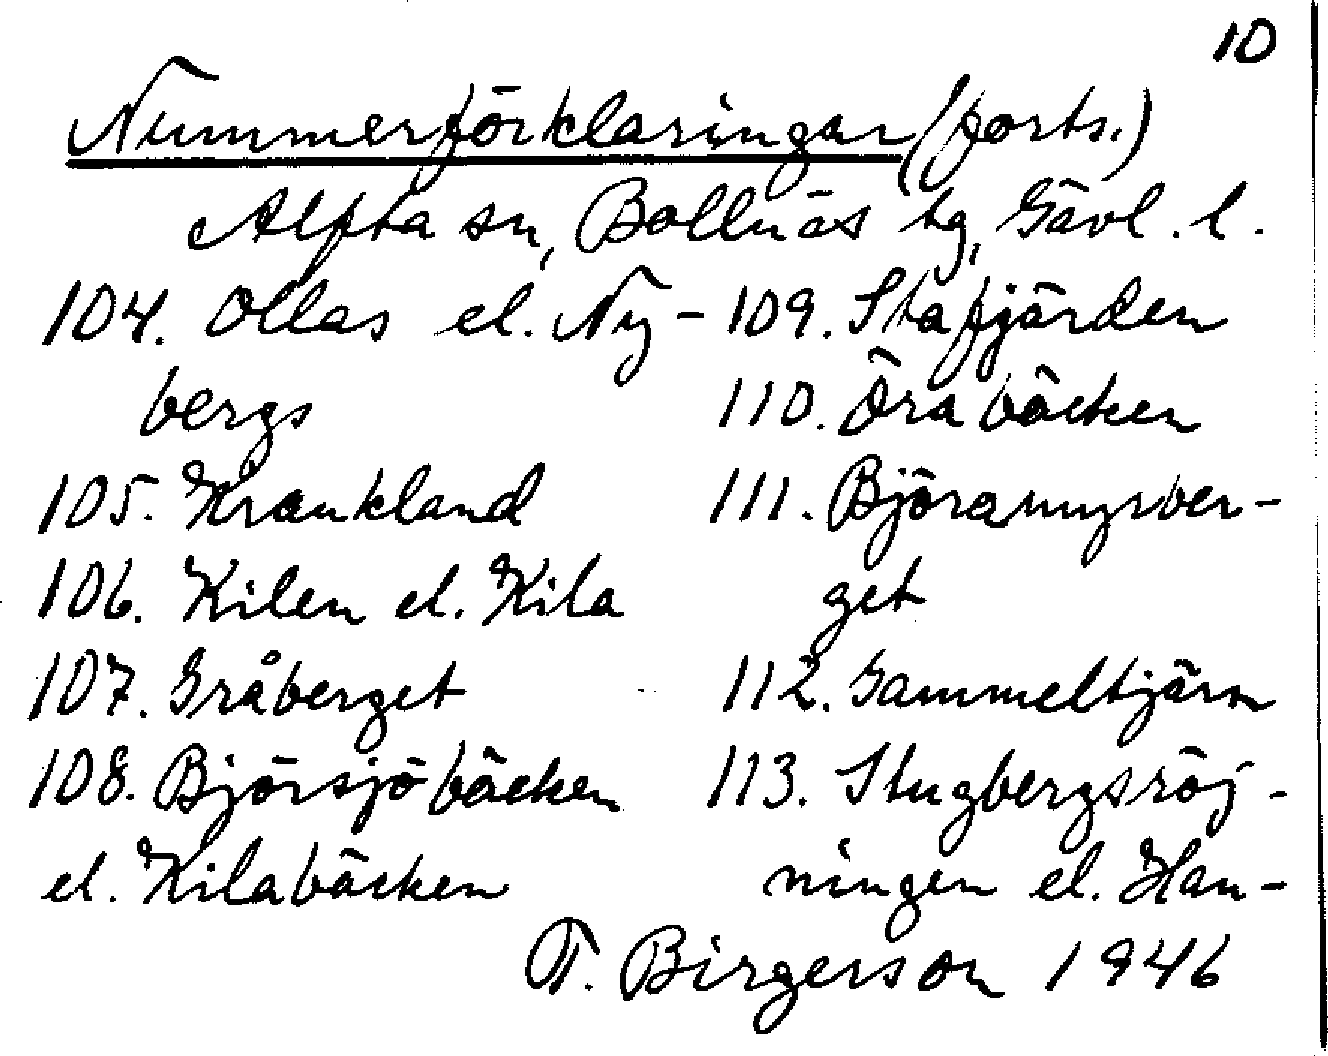 10
Nummerförklaringar (forts.)
Alfta sn, Bollnäs tg, Gävl. l.
104. Ollas el. Ny-
bergs
105. Kraukland
106. Kilen el. Kila
107. Gråberget
108. Björsjöbäcken
el. Kilabäcken
109. Stafjärden
110. Öra bäcken
111. Björamyrber-
get
112. Gammeltjärn
113. Stugbergsröj-
ningen el. Han-
T. Birgerson 1946